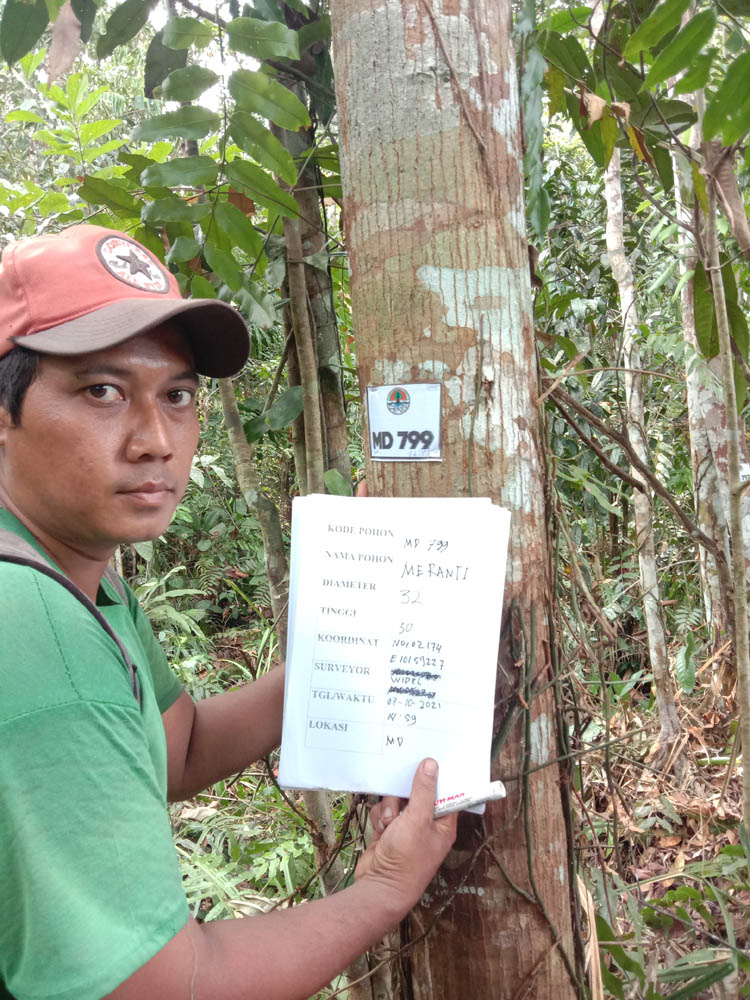 MD 799
KODE POHON MD 799
NAMA POHON MERANTI
DIAMETER 32
TINGGI 30
KOORDINAT N0102174
E10159227
SURVEYOR WIDEL
TGL/WAKTU 07-10-2021
14:59
LOKASI MD